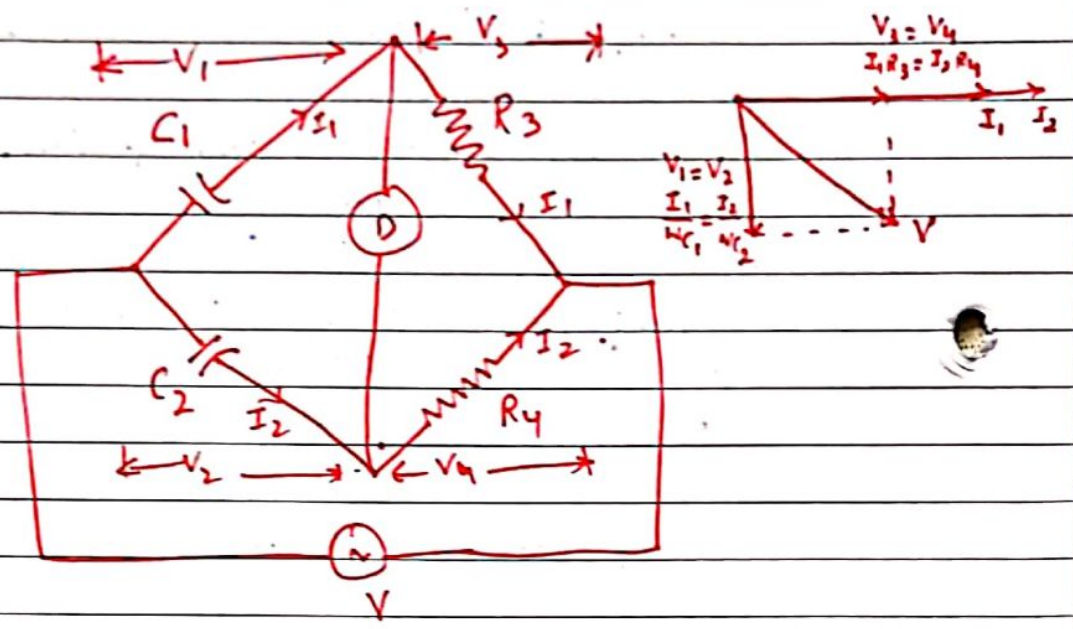 V₁
V₃
C₁
I₁
R₃
I₁
D
C₂
I₂
I₂
R₄
V₂
V₄
~
V
V₃ = V₄
I₁R₃ = I₂R₄
I₁ I₂
V₁ = V₂
I₁/wC₁ = I₂/wC₂
V